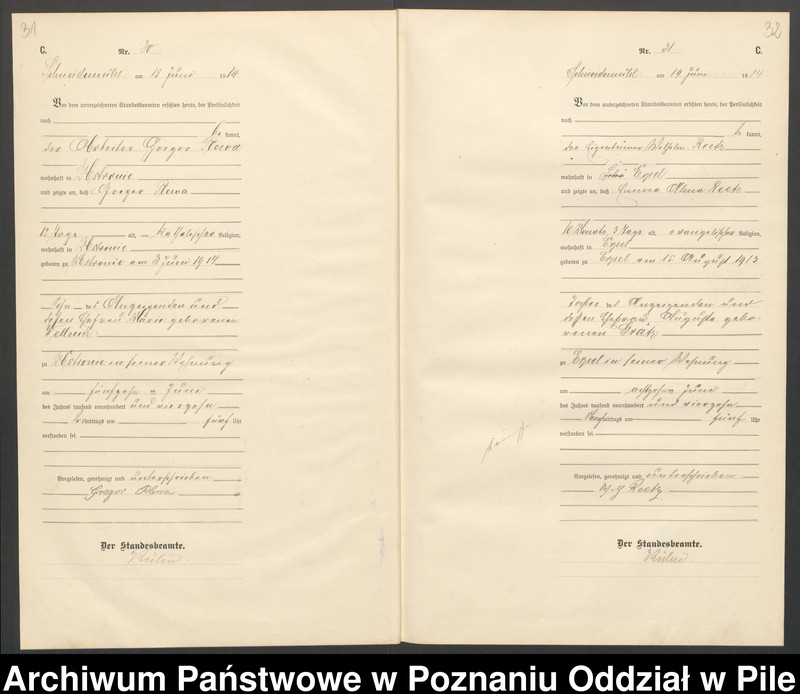 31
C.
Nr. 30
Schneidemühl am 15 Juni 1914
Vor dem unterzeichneten Standesbeamten erschien heute, der Persönlichkeit
nach
be kannt,
der Arbeiter Gregor
wohnhaft in
und zeigte an, daß Gregor
12 Tage alt, katholischer Religion,
wohnhaft in
geboren zu am 3 Juni 1914
Sohn des Anzeigenden und
dessen Ehefrau Marie geborenen
zu in seiner Wohnung
am fünfzehn Juni
des Jahres tausend neunhundert und vierzehn
Vormittags um fünf Uhr
verstorben sei.
Vorgelesen, genehmigt und unterschrieben
Gregor
Der Standesbeamte.
32
Nr. 31
C.
Schneidemühl am 19 Juni 1914
Vor dem unterzeichneten Standesbeamten erschien heute, der Persönlichkeit
nach
be kannt,
der Eigentümer Wilhelm Reetz
wohnhaft in Erpel
und zeigte an, daß Emma Alma Reetz
10 Monate, 3 Tage alt, evangelischer Religion,
wohnhaft in Erpel
geboren zu Erpel am 15 August 1913
Tochter des Anzeigenden und
dessen Ehefrau, Auguste gebo-
renen
zu Erpel in seiner Wohnung
am achtzehn Juni
des Jahres tausend neunhundert und vierzehn
Nachmittags um fünf Uhr
verstorben sei.
Vorgelesen, genehmigt und unterschrieben
Reetz
Der Standesbeamte.
Archiwum Państwowe w Poznaniu Oddział w Pile